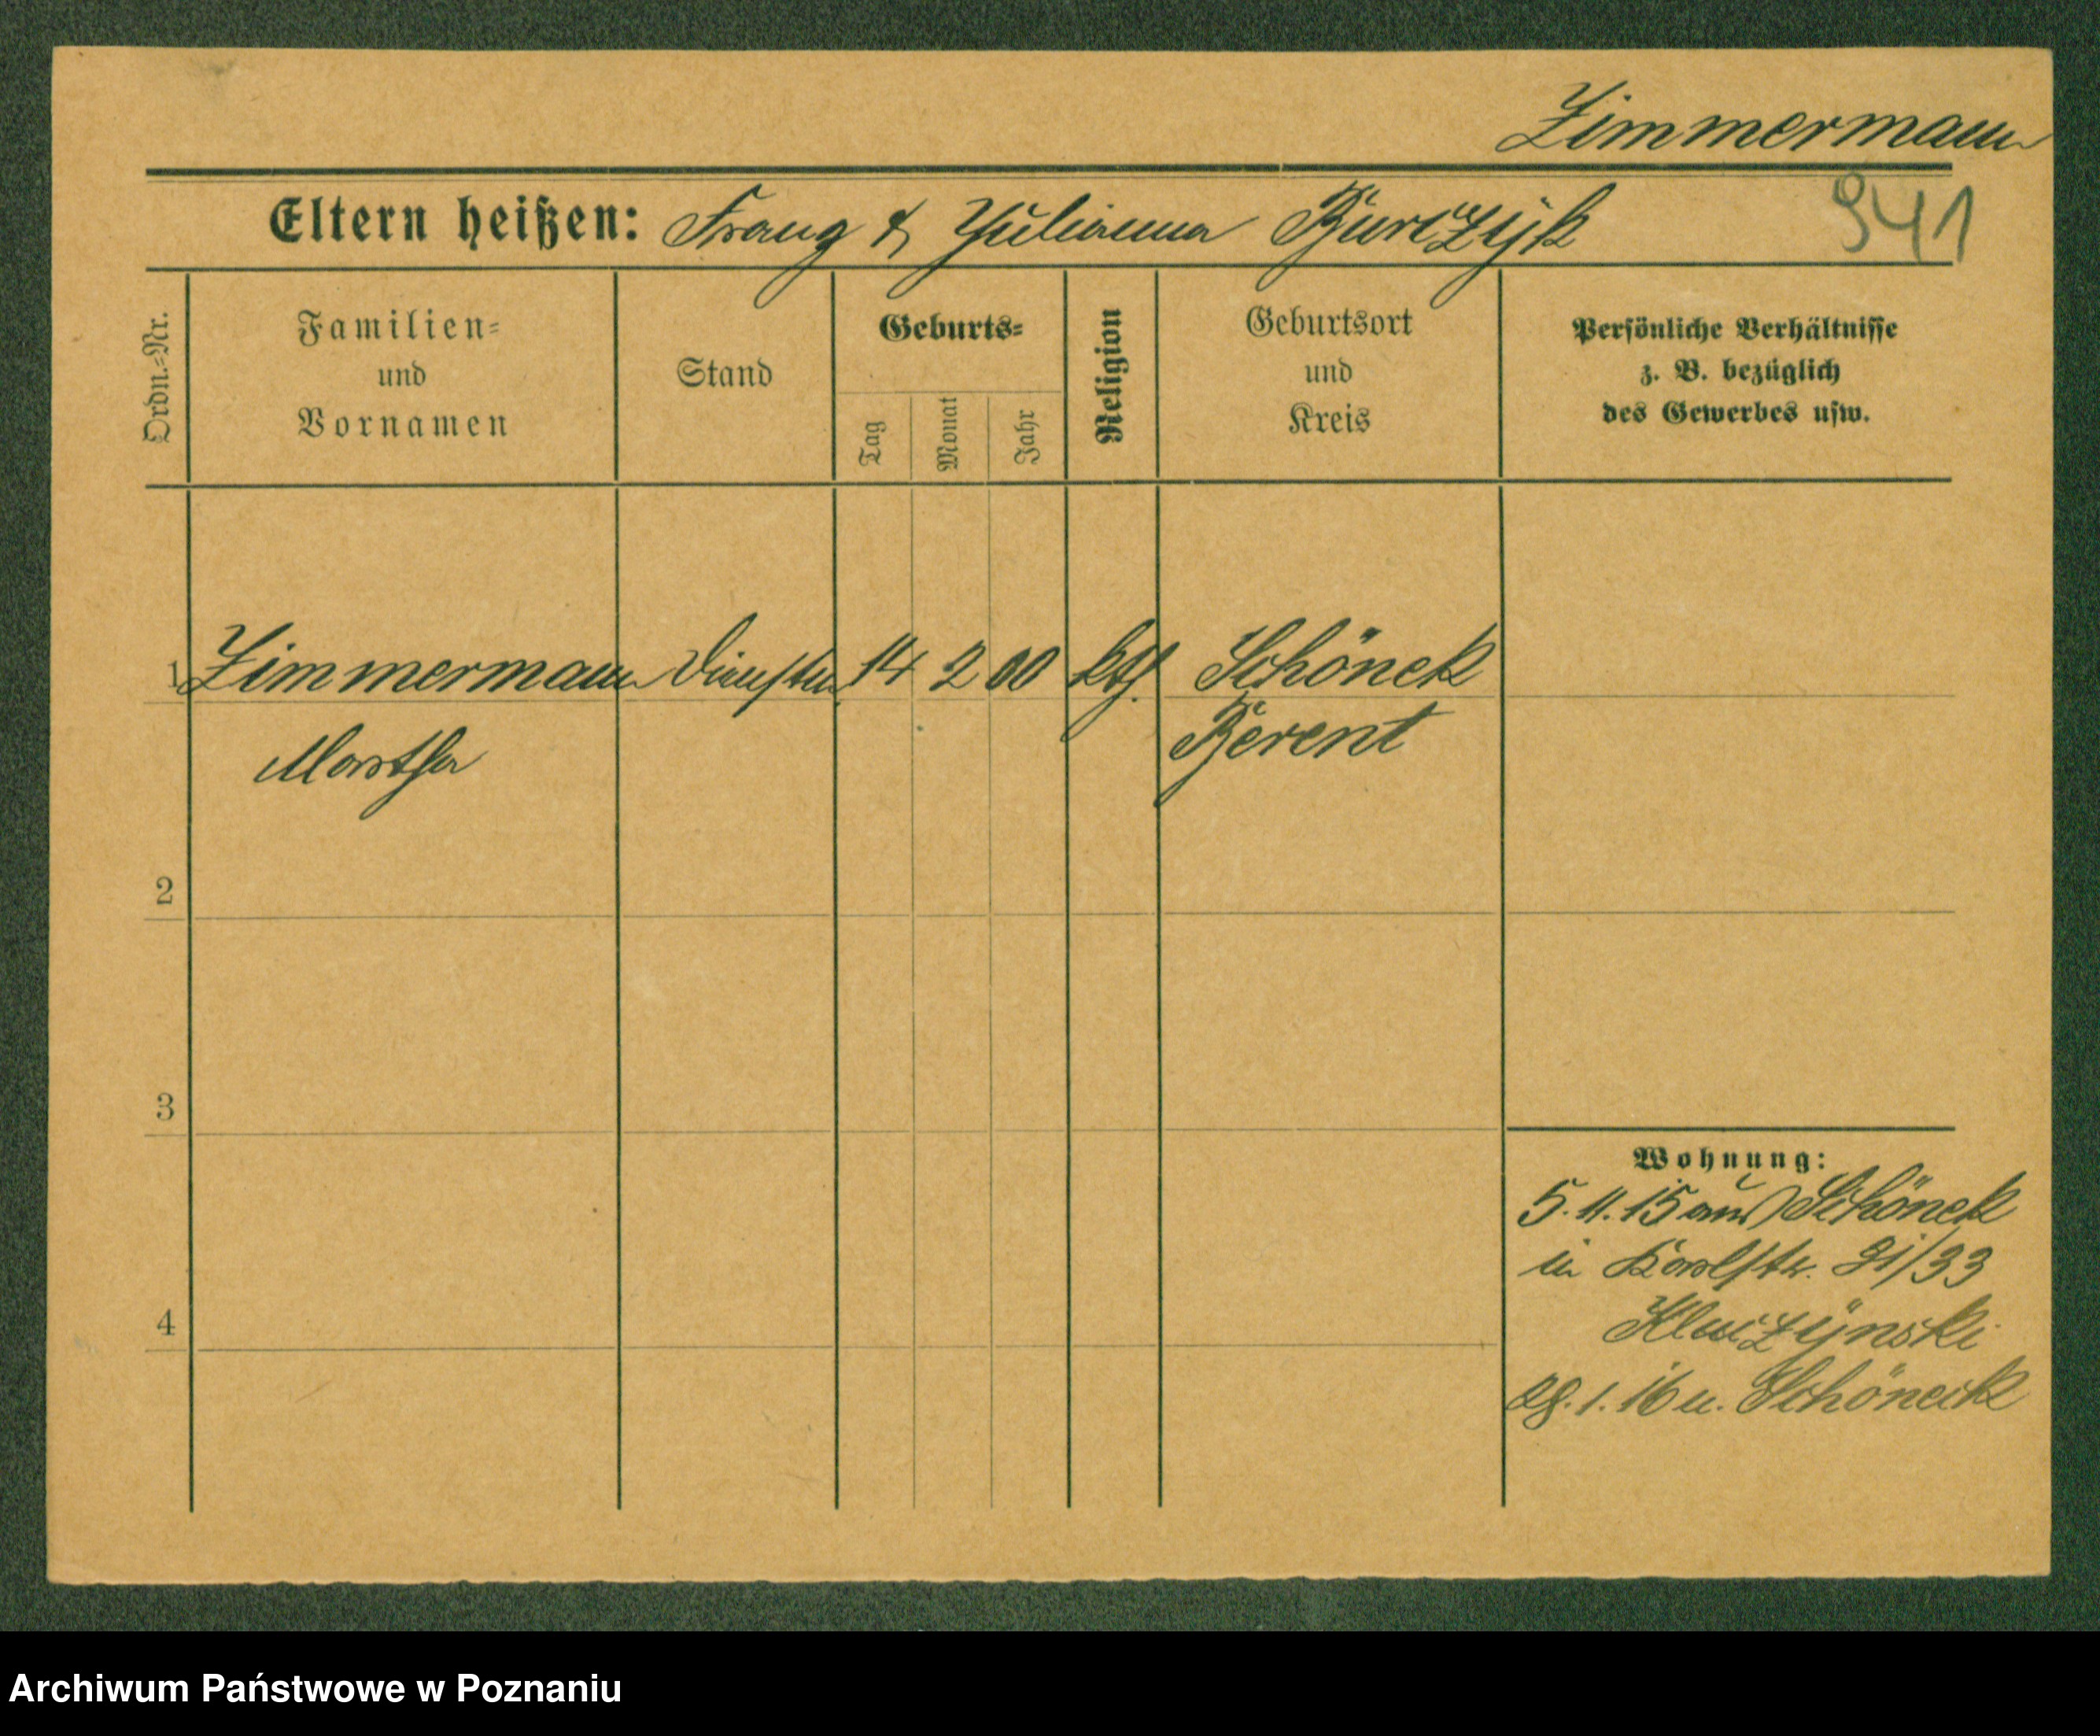 Zimmermann
Eltern heißen: Franz & Julianna Burczyk
941
Ordn.-Nr.
Familien-
und
Vornamen
Stand
Geburts-
Tag
Monat
Jahr
Religion
Geburtsort
und
Kreis
Persönliche Verhältnisse
z. B. bezüglich
des Gewerbes usw.
1 Zimmermann 14 2 00 kth. Schönek
Martha Berent
2
3
4
Wohnung:
5.11.15 aus Schönek
in Karlstr. 31/33
Kluczynski
28.1.16 n. Schöneck
Archiwum Państwowe w Poznaniu